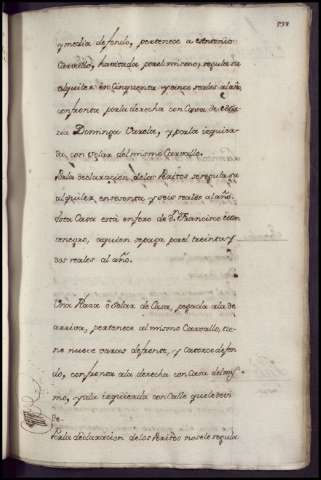 y media de fondo, pertenece a
Carvallo, havitada por el mismo, regula su
alquiler en Cinquenta y cinco reales al año,
confronta por la derecha con Casa de
Dominga Varela, y por la izquier-
da, con solar del mismo Carvallo.
Por la declaracion de los Peritos se regula su
alquiler en sesenta y seis reales al año.
Esta Casa está en foro de Dn. Francisco
tenegro, a quien se paga por el treinta y
dos reales al año.
Una Plaza ó Solar de Casa, pegada a la de
arriva, pertenece al mismo Carvallo, tie-
ne nueve varas de frente, y Catorce de fon-
do, confronta a la derecha con Casa del mis-
mo, y a la izquierda con Calle que le
Por la declaracion de los Peritos no se le regula